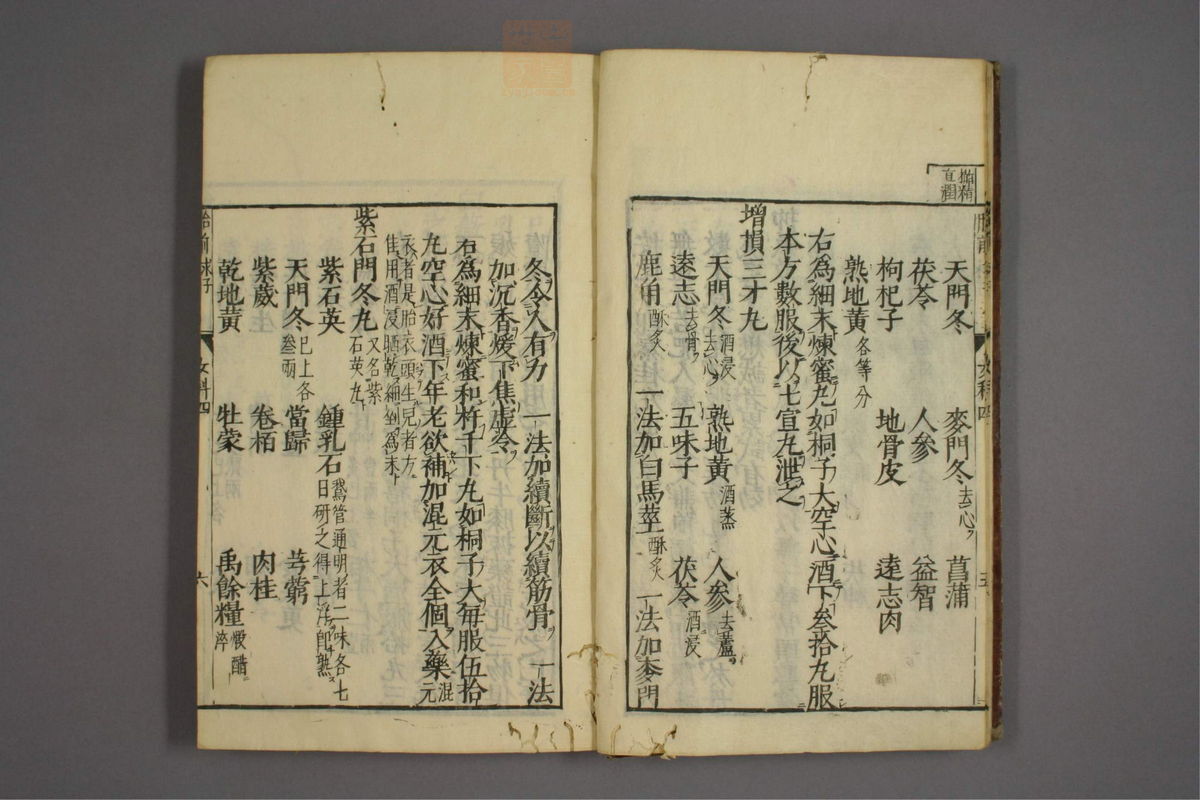 天門冬　麥門冬去心　菖蒲
茯苓　人參　益智
枸杞子　地骨皮　遠志肉
熟地黃各等分
右爲細末煉蜜丸如桐子大空心酒下叁拾丸服
本方數服後以七宣丸泄之
增損三才丸
天門冬酒浸去心　熟地黃酒蒸　人參去蘆
遠志去骨　五味子　茯苓酒浸
鹿角酥炙　一法加白馬莖酥炙　一法加麥門
冬令人有力　一法加續斷以續筋骨　一法
加沉香煖下焦虛冷
右爲細末煉蜜和杵千下丸如桐子大每服伍拾
丸空心好酒下年老欲補加混元衣全個入藥混元
衣者是胎衣頭生兒者方
佳用酒浸晒乾細剉爲末
紫石門冬丸又名紫石英丸
紫石英　鍾乳石鵝管通明者二味各七日研之得上浮即熟
天門冬已上各叁兩　當歸　芎藭
紫葳　卷栢　肉桂
乾地黃　牡蒙　禹餘糧煆醋淬
女科四
六